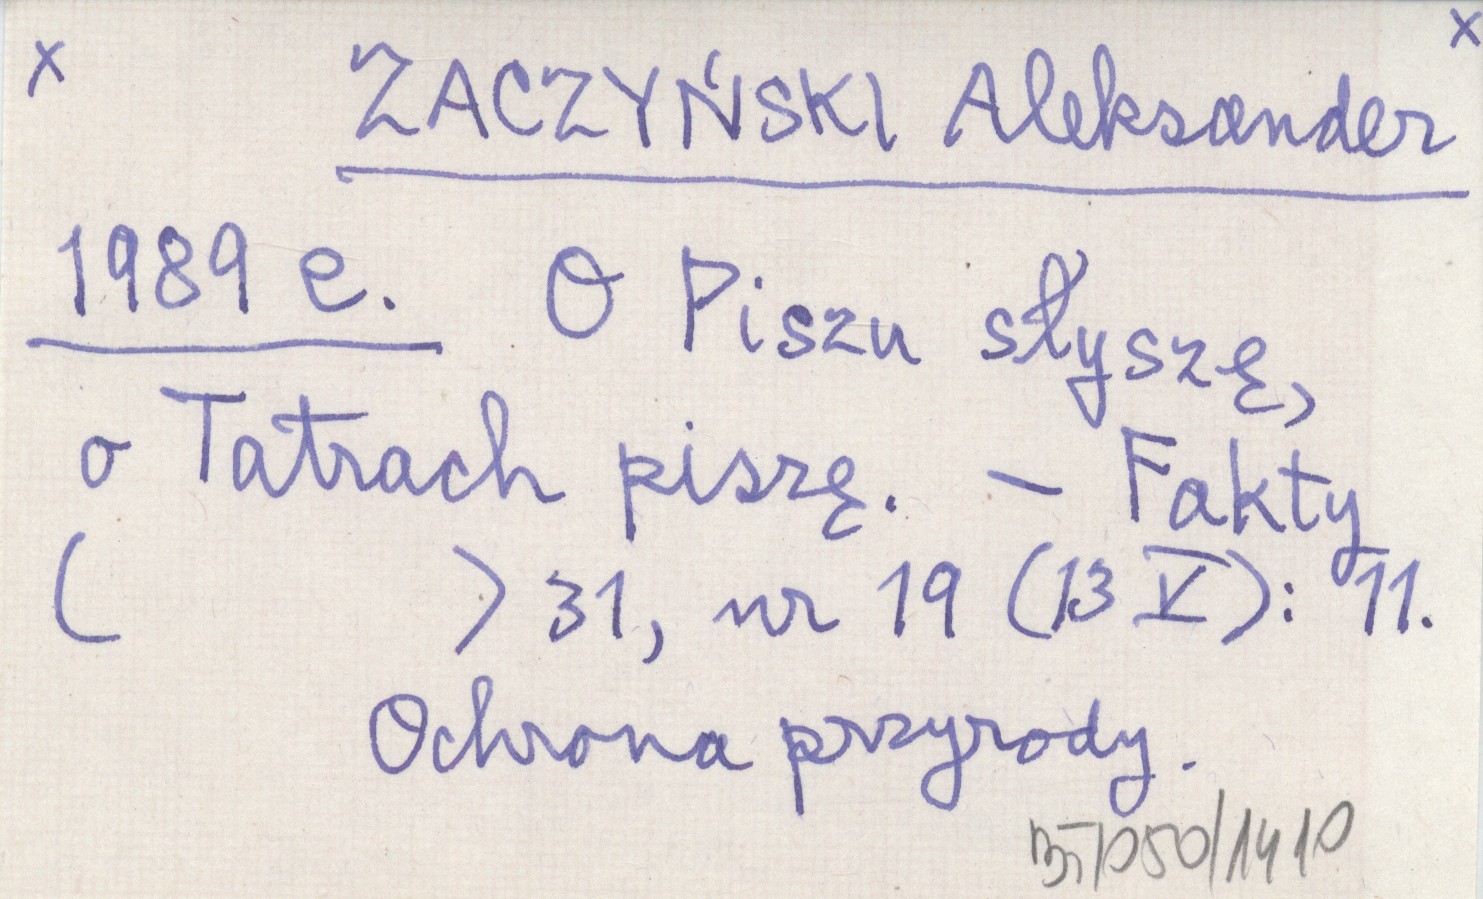 x x
ZACZYŃSKI Aleksander
1989 e. O Piszu słyszę,
o Tatrach piszę. - Fakty
( ) 31, nr 19 (13 V): 11.
Ochrona przyrody.
/050/1410